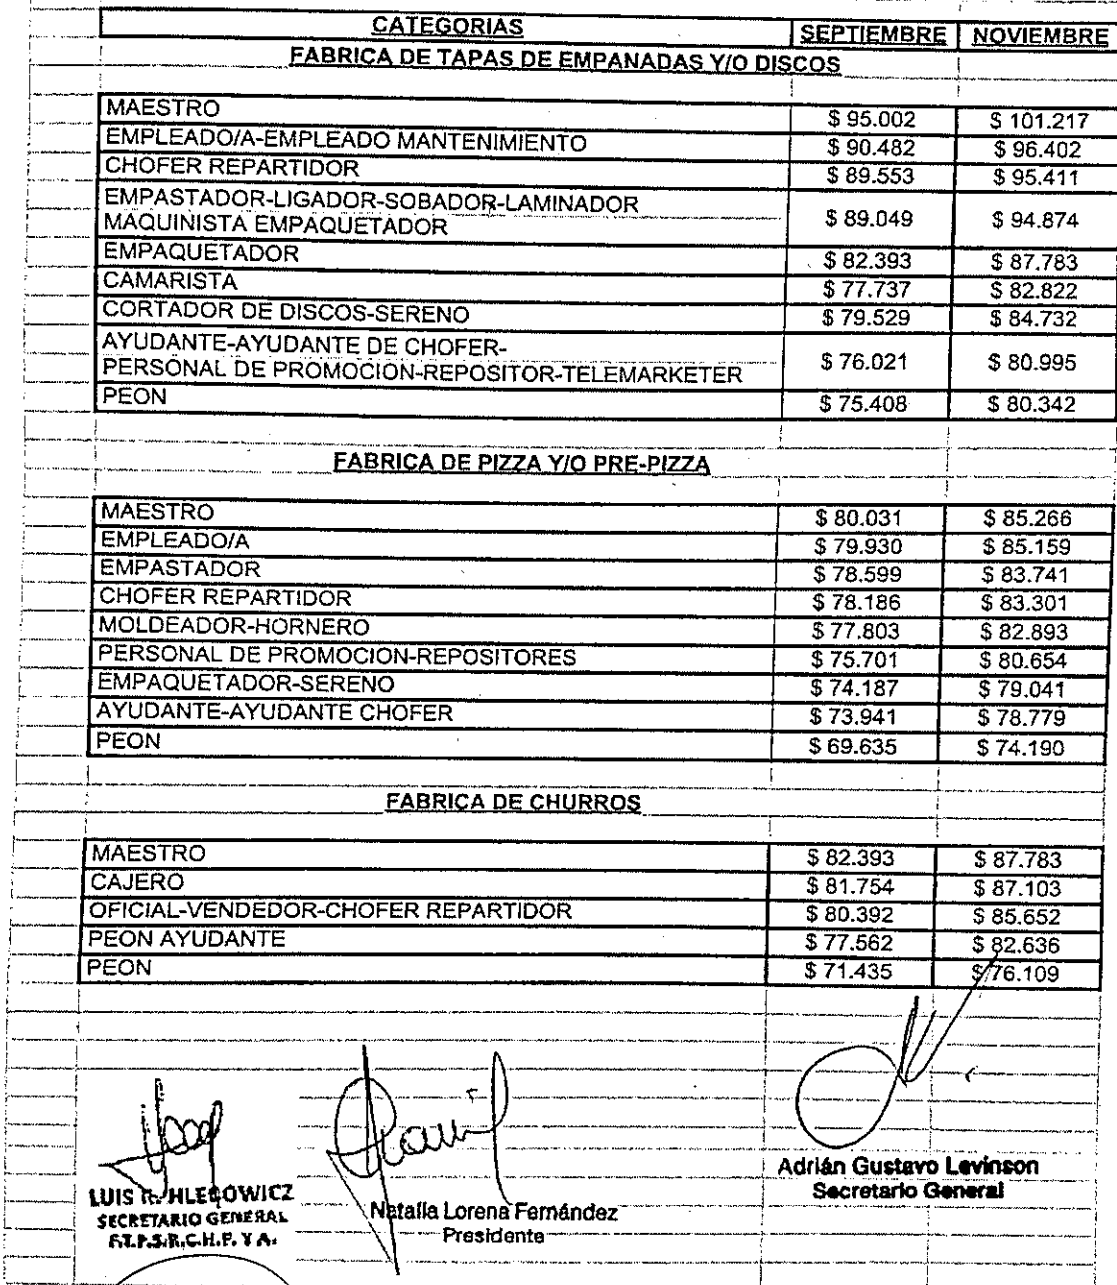 CATEGORIAS SEPTIEMBRE NOVIEMBRE
FABRICA DE TAPAS DE EMPANADAS Y/O DISCOS
MAESTRO $ 95.002 $ 101.217
EMPLEADO/A-EMPLEADO MANTENIMIENTO $ 90.482 $ 96.402
CHOFER REPARTIDOR $ 89.553 $ 95.411
EMPASTADOR-LIGADOR-SOBADOR-LAMINADOR
MAQUINISTA EMPAQUETADOR $ 89.049 $ 94.874
EMPAQUETADOR $ 82.393 $ 87.783
CAMARISTA $ 77.737 $ 82.822
CORTADOR DE DISCOS-SERENO $ 79.529 $ 84.732
AYUDANTE-AYUDANTE DE CHOFER-
PERSONAL DE PROMOCION-REPOSITOR-TELEMARKETER $ 76.021 $ 80.995
PEON $ 75.408 $ 80.342
FABRICA DE PIZZA Y/O PRE-PIZZA
MAESTRO $ 80.031 $ 85.266
EMPLEADO/A $ 79.930 $ 85.159
EMPASTADOR $ 78.599 $ 83.741
CHOFER REPARTIDOR $ 78.186 $ 83.301
MOLDEADOR-HORNERO $ 77.803 $ 82.893
PERSONAL DE PROMOCION-REPOSITORES $ 75.701 $ 80.654
EMPAQUETADOR-SERENO $ 74.187 $ 79.041
AYUDANTE-AYUDANTE CHOFER $ 73.941 $ 78.779
PEON $ 69.635 $ 74.190
FABRICA DE CHURROS
MAESTRO $ 82.393 $ 87.783
CAJERO $ 81.754 $ 87.103
OFICIAL-VENDEDOR-CHOFER REPARTIDOR $ 80.392 $ 85.652
PEON AYUDANTE $ 77.562 $ 82.636
PEON $ 71.435 $ 76.109
LUIS R. HLEBOWICZ
SECRETARIO GENERAL
F.T.P.S.R.C.H.P. Y A.
Natalia Lorena Fernández
Presidente
Adrián Gustavo Levinson
Secretario General